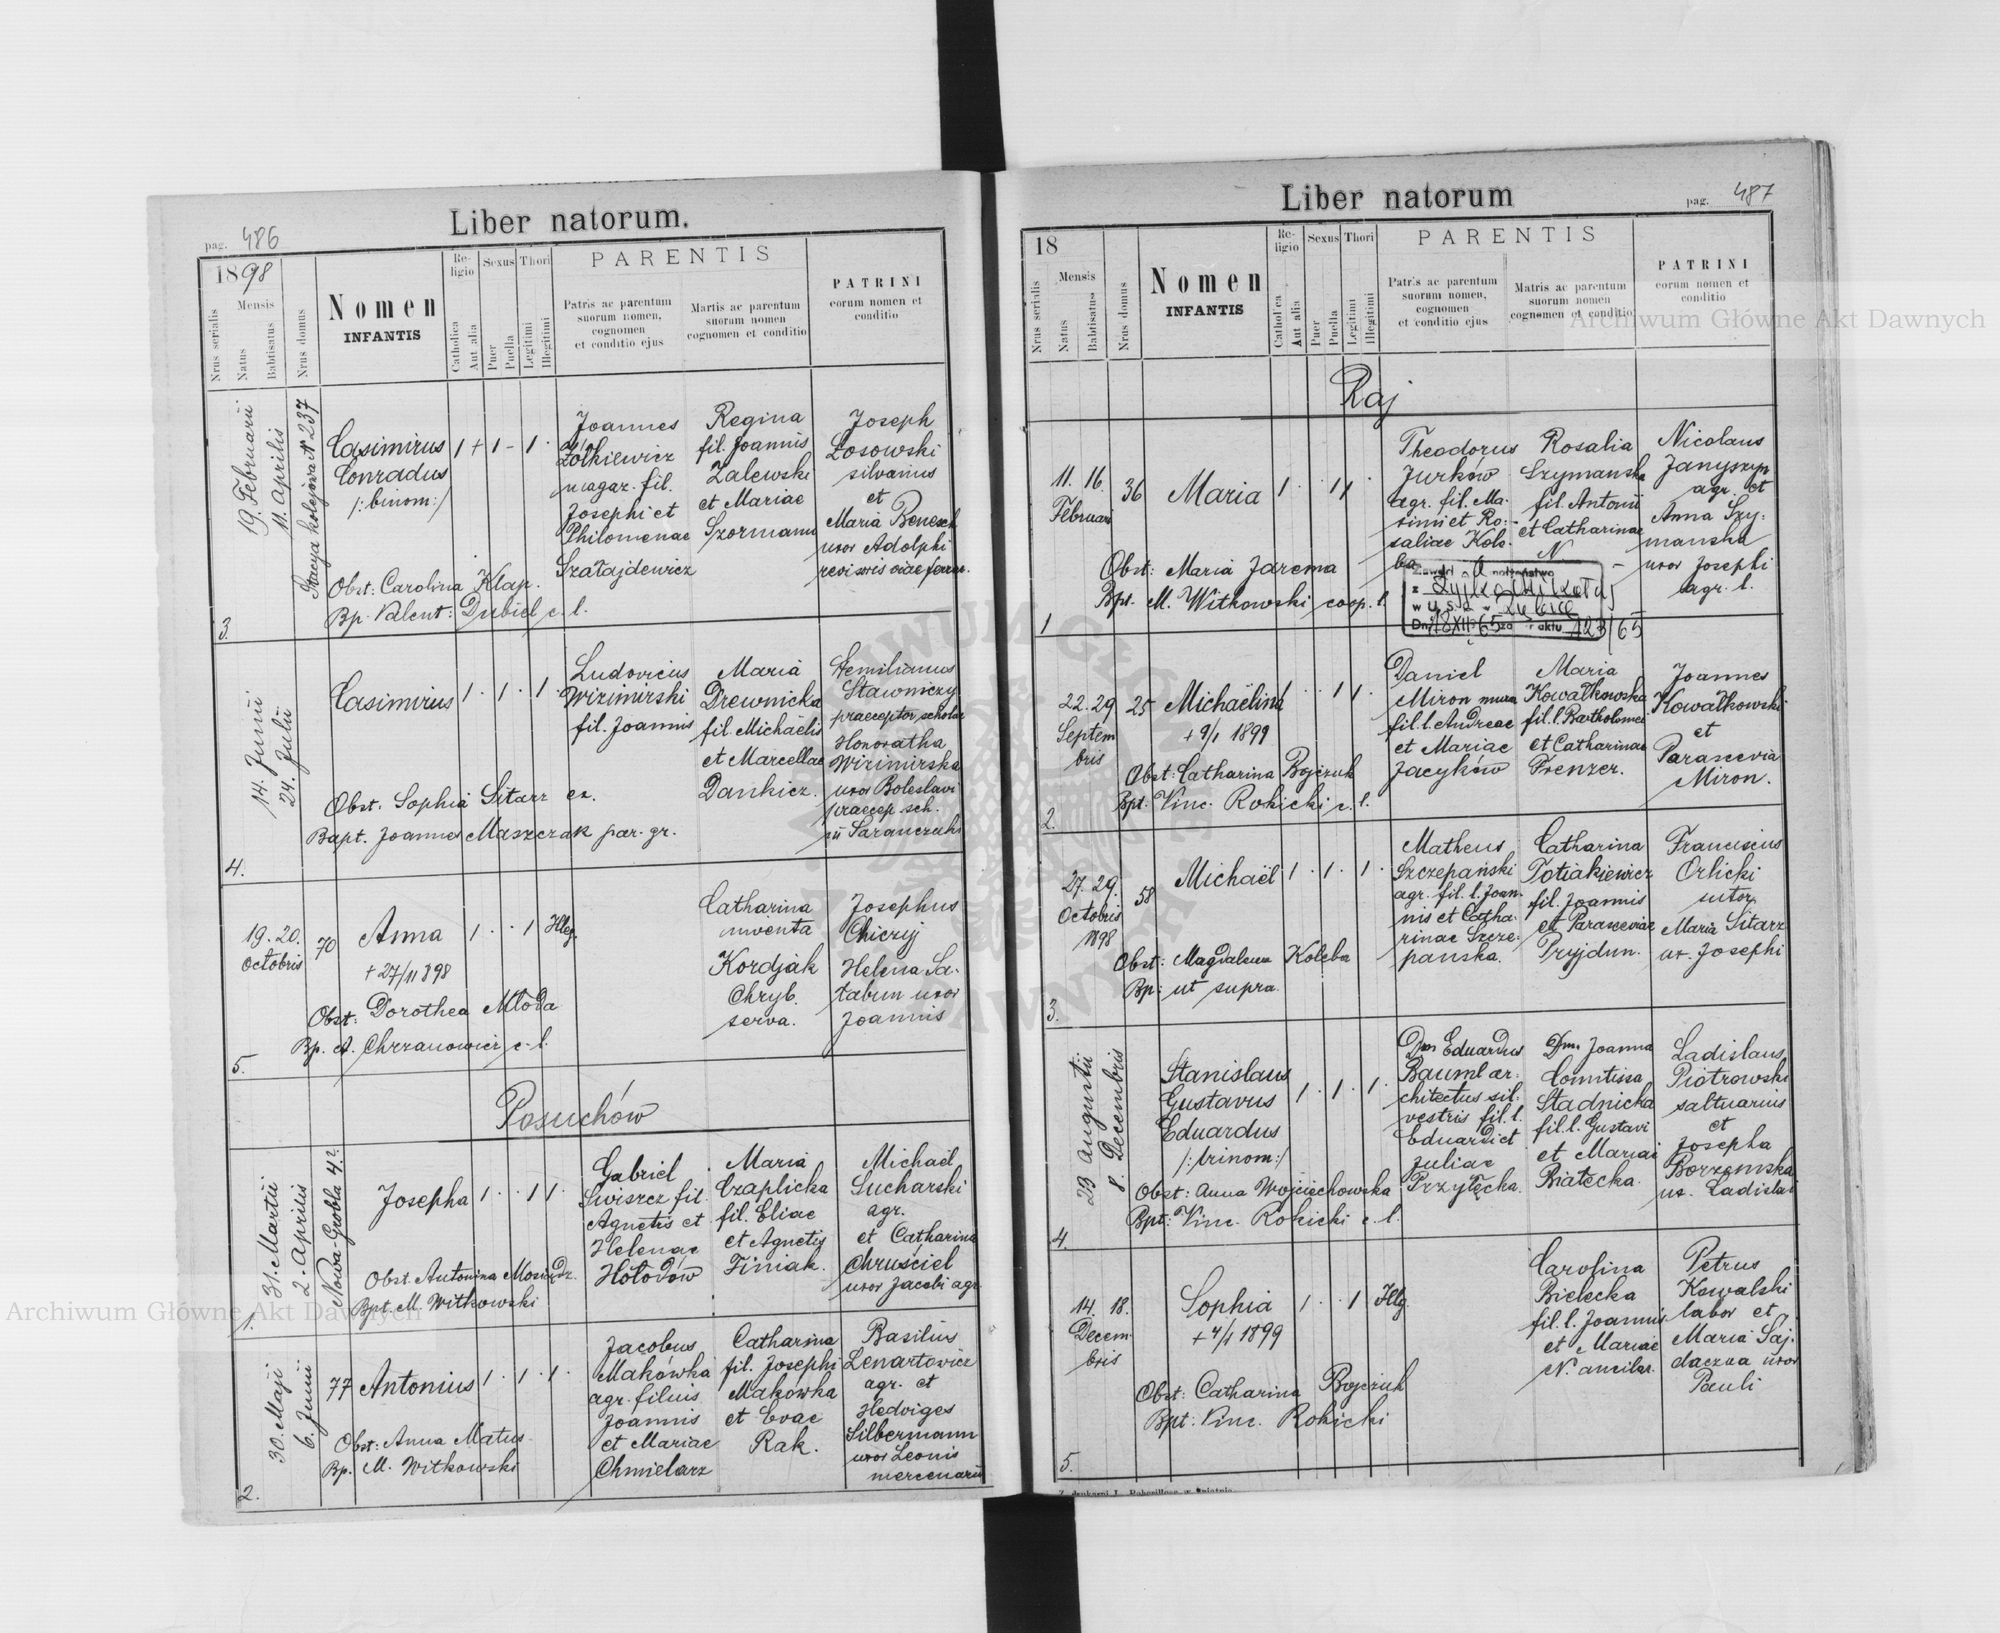 Liber natorum.
pag. 486
1898
Nrus serialis
Mensis
Natus
Babtisatus
Nrus domus
Nomen
INFANTIS
Re-
ligio
Catholica
Aut alia
Sexus
Puer
Puella
Thori
Legitimi
Illegitimi
PARENTIS
Patris ac parentum
suorum nomen,
cognomen
et conditio ejus
Martis ac parentum
suorum nomen
cognomen et conditio
PATRINI
eorum nomen et
conditio
3.
19. Februarii
11. Aprilis
Stacya kolejowa N 237
Casimirus
Conradus
/:binom:/
1 + 1 - 1 .
Joannes
Żółkiewicz
magaz. fil.
Josephi et
Philomenae
Szałajdewicz
Regina
fil. Joannis
Zalewski
et Mariae
Szormann
Joseph
Łosowski
silvanus
et
Maria Benesch
uxor Adolphi
revisoris viae ferr.
Obst: Carolina Klap.
Bp. Valent: Dubiel c. l.
4.
14. Junii
24. Julii
Casimirus
1 . 1 . 1 .
Ludovicus
Wizimirski
fil. Joannis
Maria
Drewnicka
fil Michaëlis
et Marcellae
Dankicz.
Aemilianus
Sławniczy
praeceptor scholae
Honoratha
Wizimirska
uxor Boleslavi
praecep. sch.
in Saranczuki
Obst. Sophia Sitarz ex.
Bapt. Joannes Maszczak par. gr.
5.
19. 20.
Octobris
70
Anna
+ 27/11 898
1 . . 1 Illeg.
Catharina
inventa
Kordjak
Chryb.
serva.
Josephus
Chiczij
Helena Sa-
tabun uxor
Joannis
Obst: Dorothea Młoda
Bp. A. Chrzanowicz c. l.
Posuchów
1.
31. Martii
2. Aprilis
Nowa Grobla 42
Josepha
1 . . 1 1 .
Gabriel
Swiszcz fil.
Agnetis et
Helenae
Hołodów
Maria
Czaplicka
fil. Eliae
et Agnetis
Finiak.
Michaël
Sucharski
agr.
et Catharina
Chruściel
uxor Jacobi agr.
Obst. Antonina Mosiądz.
Bpt. M. Witkowski
2.
30. Maji
6. Junii
77
Antonius
1 . 1 . 1 .
Jacobus
Makówka
agr. filius
Joannis
et Mariae
Chmielarz
Catharina
fil. Josephi
Makówka
et Evae
Rak.
Basilius
Lenartowicz
agr. et
Hedviges
Silbermann
uxor Leonis
mercenarii
Obst: Anna Matus
Bp. M. Witkowski
Liber natorum
pag. 487
18
Nrus serialis
Mensis
Natus
Babtisatus
Nrus domus
Nomen
INFANTIS
Re-
ligio
Cathol ca
Aut alia
Sexus
Puer
Puella
Thori
Legitimi
Illegitimi
PARENTIS
Patris ac parentum
suorum nomen,
cognomen
et conditio ejus
Matris ac parentum
suorum nomen
cognomen et conditio
PATRINI
eorum nomen et
conditio
Raj
1
11. 16.
Februarii
36
Maria
1 . . 1 1 .
Theodorus
Jurków
agr. fil. Ma-
ximi et Ro-
saliae Kole-
ba
Rosalia
Szymanska
fil. Antonii
et Catharinae
N
Nicolaus
Janyszyn
agr. et
Anna Szy-
manska
uxor Josephi
agr. l.
Obst: Maria Jarema
Bpt. M. Witkowski coop. l.
małżeństwo
Dnia 18 XII 65 za Nr aktu 123/65
2.
22. 29
Septem
bris
25
Michaëlina
+ 9/1 1899
1 . . 1 1 .
Daniel
Miron mura
fil. l. Andreae
et Mariae
Jacyków
Maria
Kowałkowska
fil. l. Bartholomei
et Catharinae
Frenzer.
Joannes
Kowałkowski
et
Parascevia
Miron.
Obst: Catharina Bojczuk
Bpt. Vinc. Rokicki c. l.
3.
27. 29.
Octobris
1898
58
Michaël
1 . 1 . 1 .
Matheus
Szczepański
agr. fil. l. Joan-
nis et Catha-
rinae Szcze-
pańska.
Catharina
Potiakiewicz
fil. Joannis
et Parasceviae
Pryjdun.
Franciscus
Orlicki
sutor,
Maria Sitarz
ux. Josephi
Obst: Magdalena Koleba
Bp: ut supra.
4.
23 Augusti
8. Decembris
Stanislaus
Gustavus
Eduardus
/:trinom:/
1 . 1 . 1 .
Dnus Eduardus
Bauml ar-
chitectus sil-
vestris fil. l.
Eduardi et
Juliae
Przyłęcka.
Dna. Joanna
Comtissa
Stadnicka
fil. l. Gustavi
et Mariae
Białecka.
Ladislaus
Piotrowski
saltuarius
et
Josepha
Borzemska
ux. Ladislai
Obst: Anna Wojciechowska
Bpt: Vinc. Rokicki c. l.
5.
14. 18.
Decem-
bris
Sophia
+ 4/1 1899
1 . . 1 Illeg.
Carolina
Bielecka
fil. l. Joannis
et Mariae
N. ancilar.
Petrus
Kowalski
labor et
Maria Saj-
daczna uxor
Pauli
Obst: Catharina Bojczuk
Bpt: Vinc. Rokicki
Archiwum Główne Akt Dawnych
Archiwum Główne Akt Dawnych